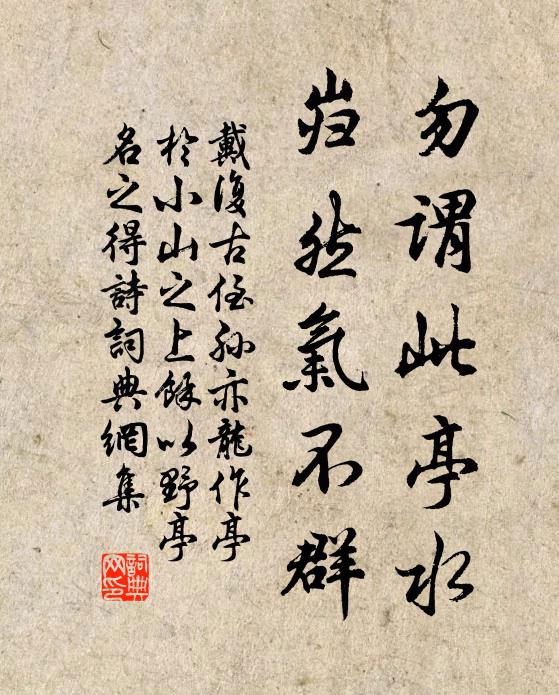 勿謂此亭水
岿然氣不群
戴復古侄孫亦龍作亭
於小山之上餘以野亭
名之得詩詞典網集
詞典
网印